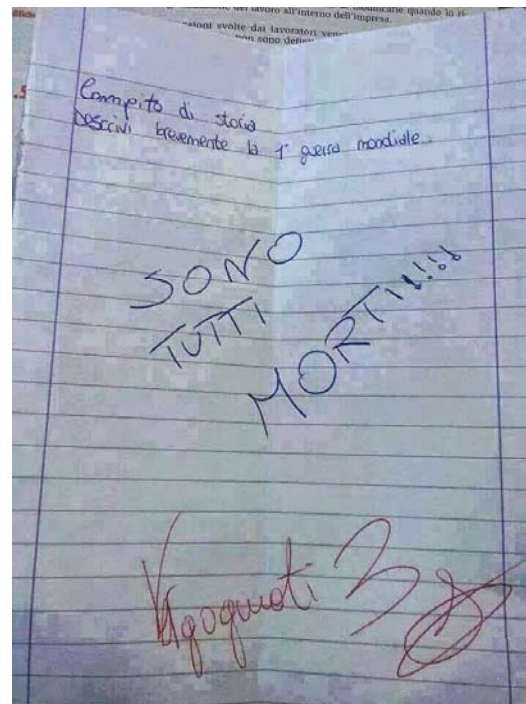 del lavoro all'interno dell'impresa.
quando lo si
svolte dai lavoratori
non sono
Compito di storia
Descrivi brevemente la 1ª guerra mondiale..
SONO
TUTTI
MORTI!!!!
Vergognati 3